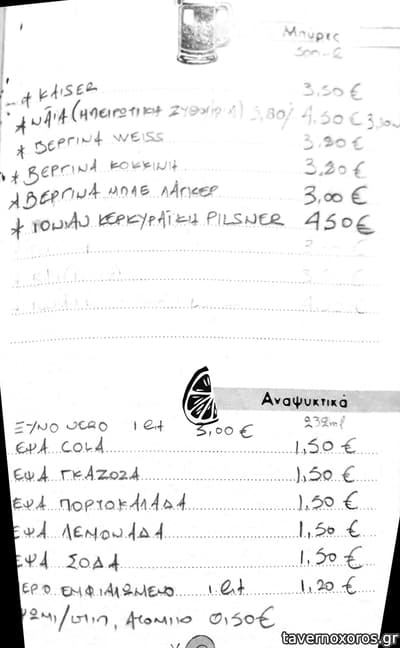 Μπυρες
500-2
* KAISER 3,50 €
* ΝΑΪΑ (ΗΠΕΙΡΩΤΙΚΗ ΖΥΘΟΠ Α) 3,80/ 4,50 €
* ΒΕΡΓΙΝΑ WEISS 3,20 €
* ΒΕΡΓΙΝΑ ΚΟΚΚΙΝΗ 3,20 €
* ΒΕΡΓΙΝΑ ΜΠΛΕ ΛΑΓΚΕΡ 3,00 €
* ΙΟΝΙΑΝ ΚΕΡΚΥΡΑΪΚΗ PILSNER 450€
Αναψυκτικά
ΞΥΝΟ ΝΕΡΟ 1 lit 3,00 € 232ml
ΕΨΑ COLA 1,50 €
ΕΨΑ ΓΚΑΖΟΖΑ 1,50 €
ΕΨΑ ΠΟΡΤΟΚΑΛΑΔΑ 1,50 €
ΕΨΑ ΛΕΜΟΝΑΔΑ 1,50 €
ΕΨΑ ΣΟΔΑ 1,50 €
ΕΡΟ ΕΜΦΙΑΛΩΜΕΝΟ 1 lit 1,20 €
ΨΩΜΙ/ΠΙΤΑ, ΑΤΟΜΙΚΟ 0,50€
tavernoxoros.gr